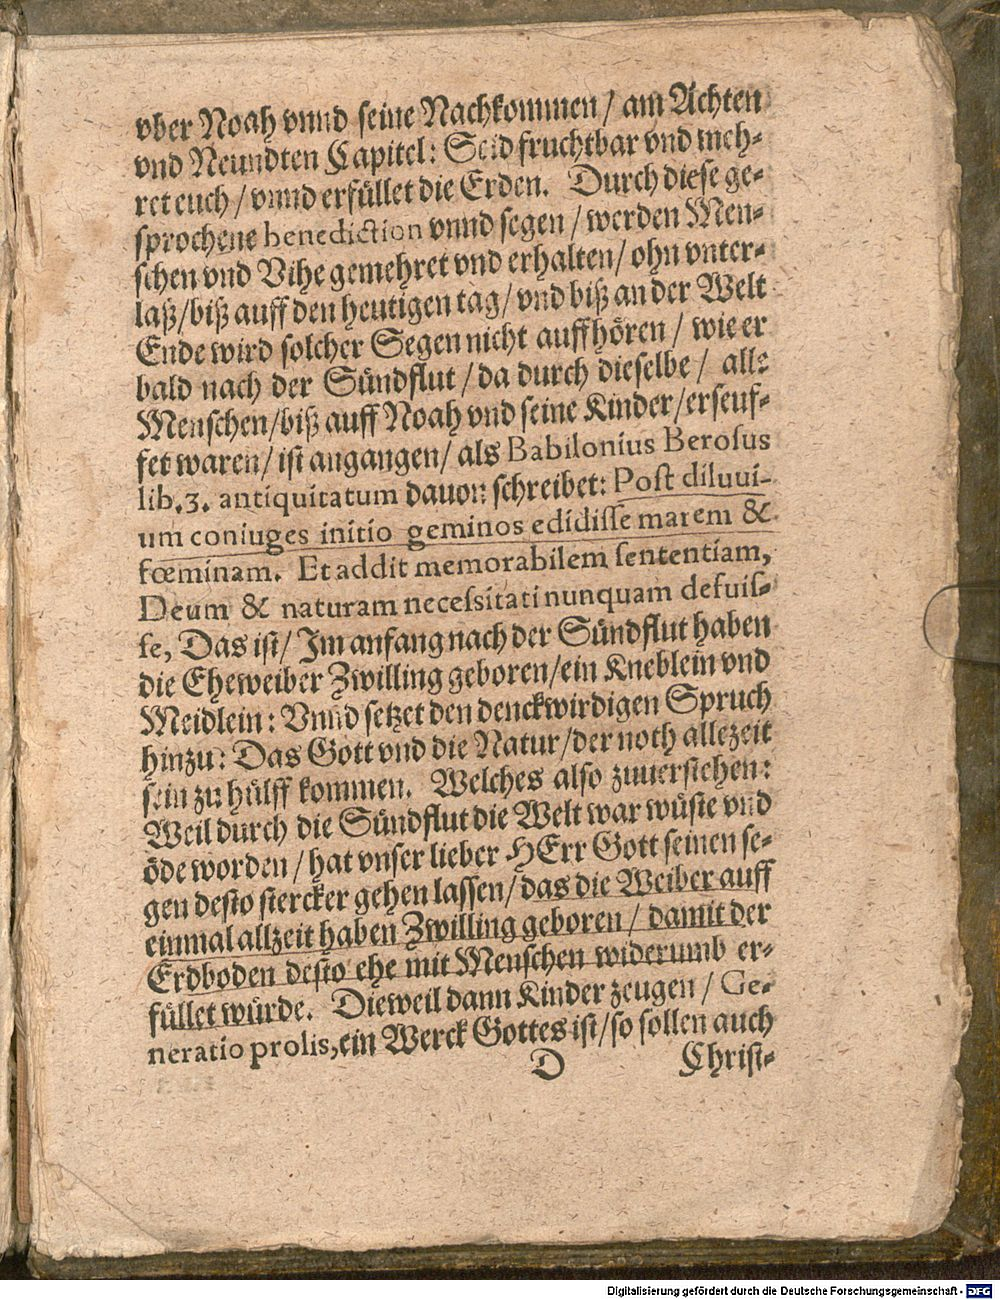 vber Noah vnnd seine Nachkommen / am Achten
vnd Neundten Capitel: Seid fruchtbar vnd meh⸗
ret euch / vnnd erfüllet die Erden. Durch diese ge⸗
sprochene benediction vnnd segen / werden Men⸗
schen vnd Vihe gemehret vnd erhalten / ohn vnter⸗
laß / biß auff den heutigen tag / vnd biß an der Welt
Ende wird solcher Segen nicht auffhören / wie er
bald nach der Sündflut / da durch dieselbe / alle
Menschen / biß auff Noah vnd seine Kinder / erseuf⸗
fet waren / ist angangen / als Babilonius Berosus
lib. 3. antiquitatum dauon schreibet: Post diluui-
um coniuges initio geminos edidisse marem &
fœminam. Et addit memorabilem sententiam,
Deum & naturam necessitati nunquam defuis-
se, Das ist / Im anfang nach der Sündflut haben
die Eheweiber Zwilling geboren / ein Kneblein vnd
Meidlein: Vnnd setzet den denckwirdigen Spruch
hinzu: Das Gott vnd die Natur / der noth allezeit
sein zu hülff kommen. Welches also zuuerstehen:
Weil durch die Sündflut die Welt war wüste vnd
öde worden / hat vnser lieber HErr Gott seinen se⸗
gen desto stercker gehen lassen / das die Weiber auff
einmal allzeit haben Zwilling geboren / damit der
Erdboden desto ehe mit Menschen widerumb er⸗
füllet würde. Dieweil dann Kinder zeugen / Ge-
neratio prolis, ein Werck Gottes ist / so sollen auch
D Christ⸗
Digitalisierung gefördert durch die Deutsche Forschungsgemeinschaft - DFG